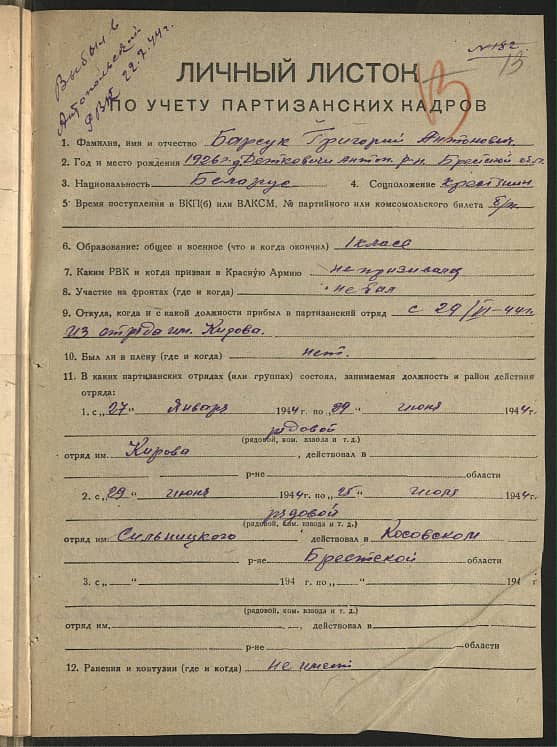 Выбыл в
Антопольский
РВК 22.7.44г.
№ 132
13
ЛИЧНЫЙ ЛИСТОК
ПО УЧЕТУ ПАРТИЗАНСКИХ КАДРОВ
1. Фамилия, имя и отчество Барсук Григорий Антонович
2. Год и место рождения 1926г. д. Деткович Антоп. р-н. Брестской обл.
3. Национальность Беларус 4. Соцположение крестянин
5 Время поступления в ВКП(б) или ВЛКСМ, № партийного или комсомольского билета б/п
6. Образование: общее и военное (что и когда окончил) 1 класа
7. Каким РВК и когда призван в Красную Армию не призивался
8. Участие на фронтах (где и когда) не бал
9. Откуда, когда и с какой должности прибыл в партизанский отряд с 29/VI-44г.
из отряда им. Кирова.
10. Был ли в плену (где и когда) нет.
11. В каких партизанских отрядах (или группах) состоял, занимаемая должность и район действия
отряда:
1. с „27“ Января 1944 г. по „29“ июня 1944 г.
рядовой
(рядовой, ком. взвода и т. д.)
отряд им. Кирова, действовал в
р-не области
2. с „29“ июня 1944 г. по „25“ июля 1944 г.
рядовой
(рядовой, ком. взвода и т. д.)
отряд им. Сильницкого действовал в Косовском
р-не Брестской области
3. с „ “ 194 г. по „ “ 194 г
(рядовой, ком. взвода и т. д.)
отряд им. , действовал в
р-не области
12. Ранения и контузии (где и когда) не имеет